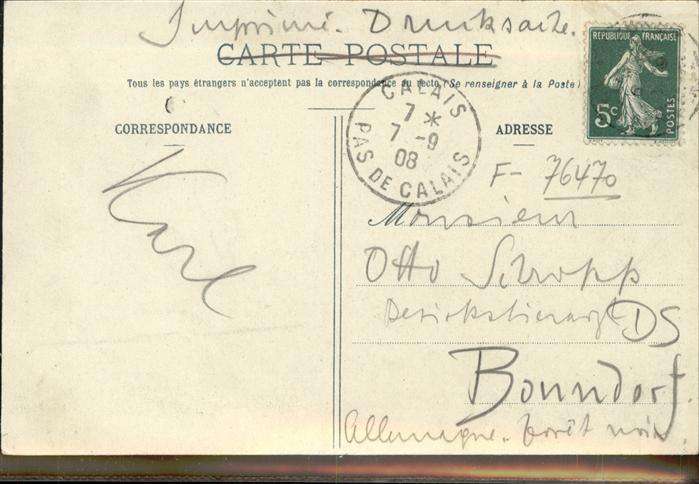 Imprimé. Drucksache.
CARTE POSTALE
Tous les pays étrangers n'acceptent pas la correspondance au recto (Se renseigner à la Poste)
REPUBLIQUE FRANÇAISE
5c
POSTES
CALAIS
7 *
7 -9
08
PAS DE CALAIS
CORRESPONDANCE
ADRESSE
F- 76470
Karl
Monsieur
Otto Schopp
Bezirkstierarzt DS
Bonndorf
Allemagne. forêt noire